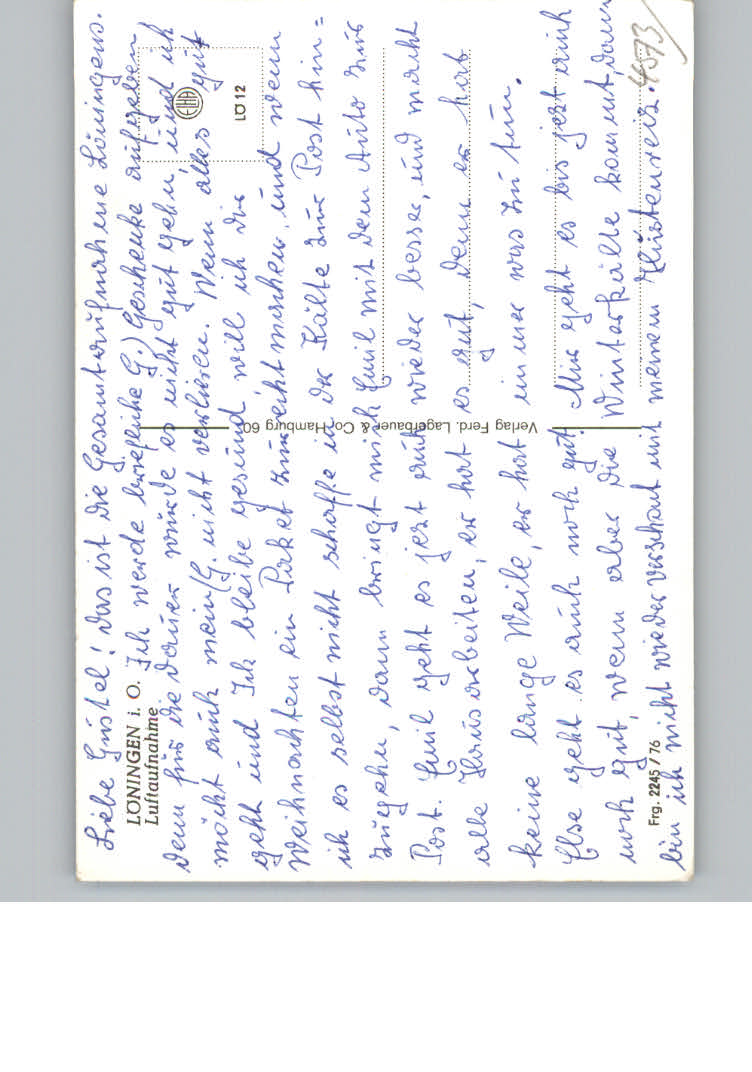 Liebe Gustel! Das ist die Gesamtaufnahme Löningens.
LÖNINGEN i. O.
Luftaufnahme
Ich werde (briefliche G.) Geschenke aufgeben
denn für die Dauer würde es nicht gut gehn, und ich
möcht auch mein G. nicht verlieren. Wenn alles gut
geht und Ich bleibe gesund will ich die
Weihnachten ein Paket zurechtmachen, und wenn
ich es selbst nicht schaffe in der Kälte zur Post hin=
zugehn, dann bringt mich Emil mit dem Auto zur
Post. Emil geht es jezt auch wieder besser, und macht
alle Hausarbeiten, er hat es gut, denn er hat
keine lange Weile, er hat immer was zu tun.
Else geht es auch noch gut. Mir geht es bis jezt auch
noch gut, wenn aber die Winterkälte kommt, dann
bin ich nicht wieder verschont mit meinem Hustenreiz.
Frg. 2245 / 76
Verlag Ferd. Lagerbauer & Co Hamburg 60
LÖ 12
4573